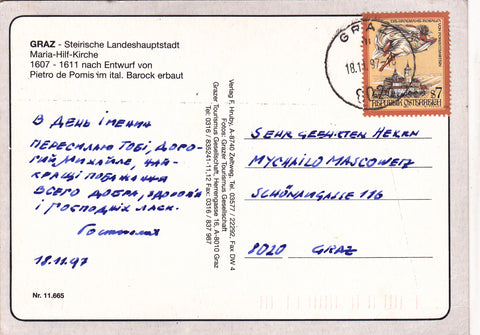 GRAZ - Steirische Landeshauptstadt
Maria-Hilf-Kirche
1607 - 1611 nach Entwurf von
Pietro de Pomis im ital. Barock erbaut
В ДЕНЬ ІМЕНИН
ПЕРЕСИЛАЮ ТОБІ, ДОРО-
ГИЙ МИХАЙЛЕ, НАЙ-
КРАЩІ ПОБАЖАННЯ
ВСЕГО ДОБРА, ЗДОРОВЛЯ
І ГОСПОДНІХ ЛАСК.
18.11.97
Nr. 11.665
Verlag F. Hruby, A-8740 Zeltweg, Tel. 03577 / 22292, Fax DW 4
Fotos: Grazer Tourismus Gesellschaft
Grazer Tourismus Gesellschaft, Herrengasse 16, A-8010 Graz
Tel: 0316 / 835241-11,12 Fax: 0316 / 837 987
GRAZ
18.11.97-16
8020
7
REPUBLIK ÖSTERREICH
SEHR GEEHRTEN HERRN
MYCHAILO MASCOWETZ
SCHÖNAUGASSE 116
8020 GRAZ